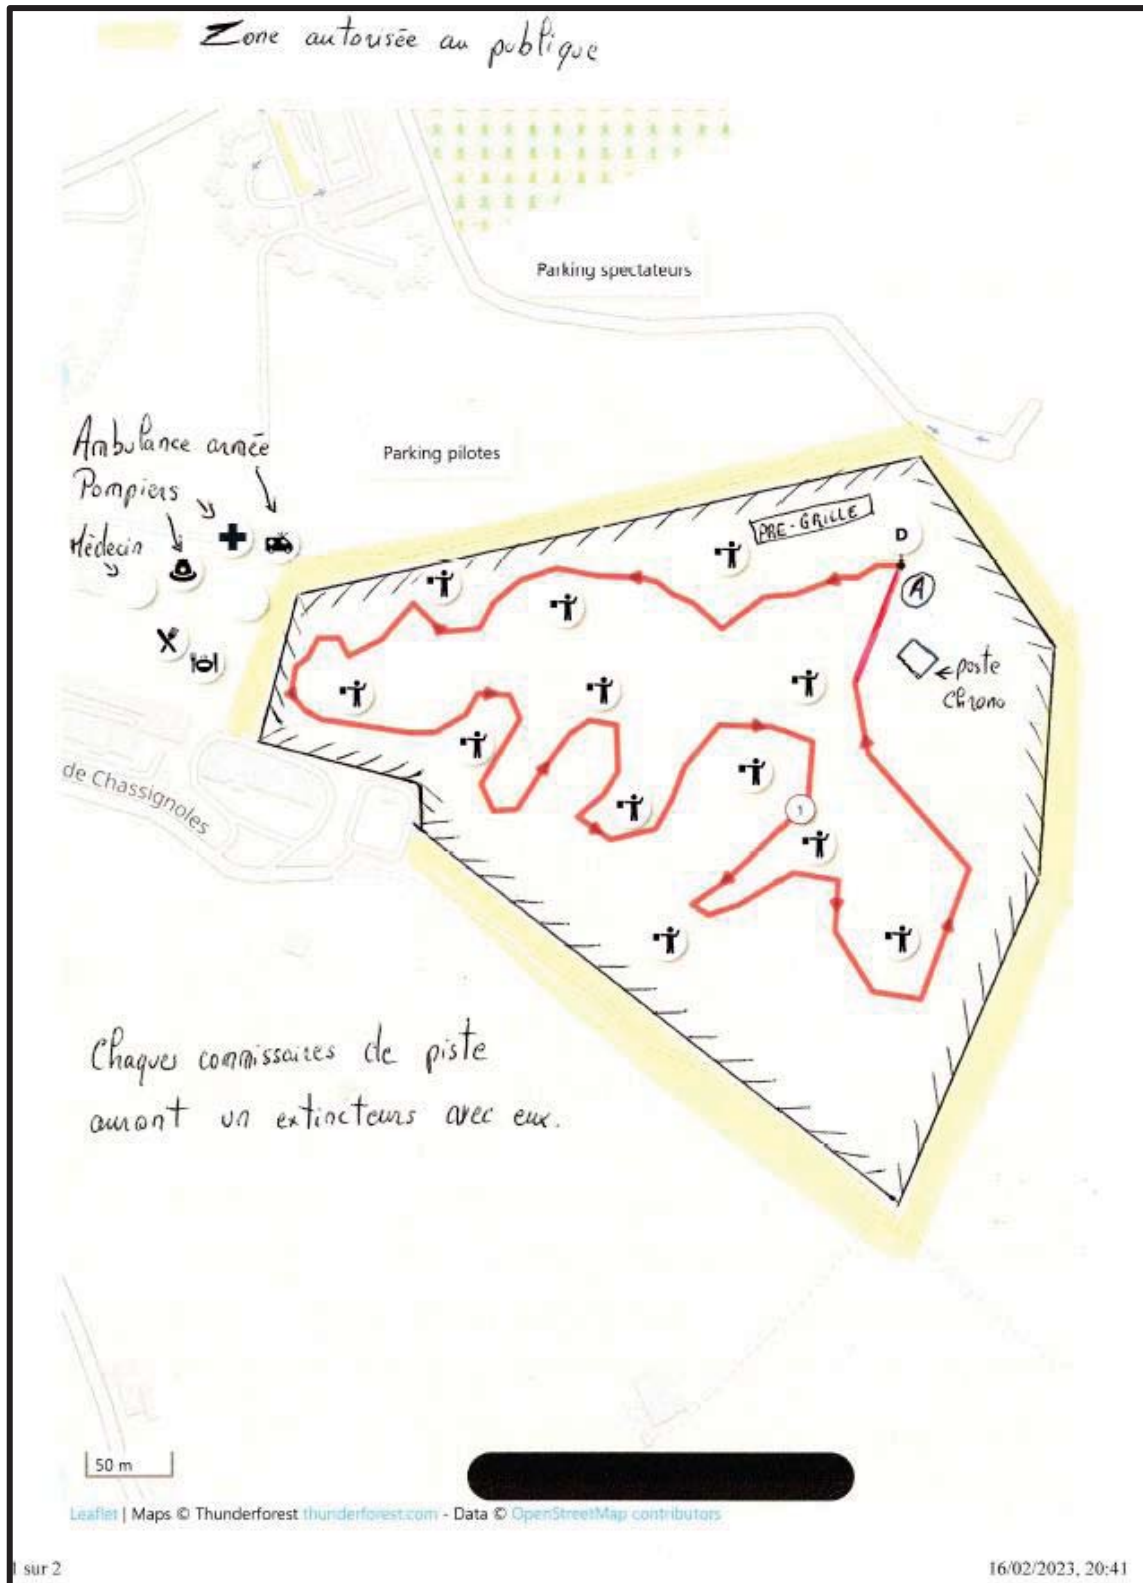 Zone autorisée au publique
Parking spectateurs
Ambulance armée
Parking pilotes
Pompiers
Médecin
PRE-GRILLE
D
A
poste
chrono
de Chassignoles
1
Chaques commissaires de piste
auront un extincteurs avec eux.
50 m
Leaflet | Maps © Thunderforest thunderforest.com - Data © OpenStreetMap contributors
1 sur 2
16/02/2023, 20:41